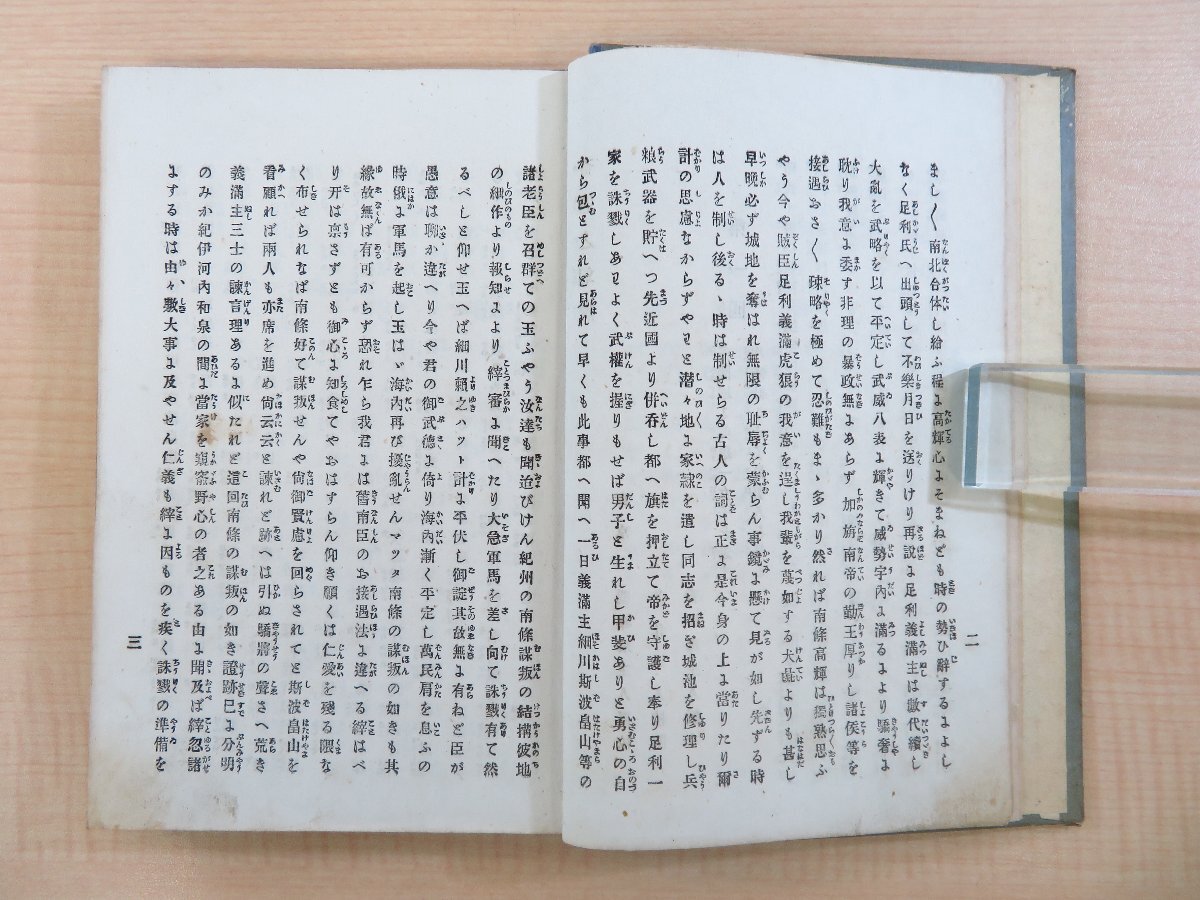 ましく南北合体し給ふ程よ高輝心よそまねども時の勢ひ辭するよよし
なく足利氏へ出頭して不樂月日を送りけり再説よ足利義滿主は數代續し
大亂を武略を以て平定し武威八表よ輝きて威勢宇內よ滿るより驕奢よ
耽り我意よ委す非理の暴政無よあらず加旃南帝の勤王厚りし諸侯等を
接遇おさ〱疎略を極めて忍難もまゝ多かり然れば南條高輝は獨熟思ふ
やう今や賊臣足利義滿虎狼の我意を逞し我輩を蔑如する犬畾よりも甚し
早晩必ず城地を奪はれ無限の耻辱を蒙らん事鏡よ懸て見が如し先ずる時
は人を制し後るゝ時は制せらる古人の詞は正よ是今身の上よ當りたり爾
計の思慮なからずやヒと潜々地よ家隷を遣し同志を招ぎ城池を修理し兵
粮武器を貯へつ先近國より併呑し都へ旗を押立て帝を守護し奉り足利一
家を誅戮しあヒよく武權を握りもせば男子と生れし甲斐ありと勇心の自
から包とすれど見れて早くも此事都へ聞へ一日義滿主細川斯波畠山等の
二
諸老臣を召群ての玉ふやう汝達も聞迨びけん紀州の南條謀叛の結搆彼地
の細作より報知よより縡審よ聞へたり大急軍馬を差し向て誅戮有て然
るべしと仰せ玉へば細川賴之ハット計よ平伏し御諚其故無よ有ねど臣が
愚意は聊か違へり今や君の御武德よ倚り海內漸く平定し萬民肩を息ふの
時俄よ軍馬を起し玉はゞ海內再び擾亂せんマッタ南條の謀叛の如きも其
緣故無ば有可からず恐れ乍ら我君よは舊南臣のお接遇法よ違へる縡はべ
り开は禀さずとも御心よ知食てやおはすらん仰き願くは仁愛を殘る隈な
く布せられなば南條好て謀叛せんや尙御賢慮を回らされてと斯波畠山を
看顧れば兩人も亦席を進め尙云云と諫れど跡へは引ぬ驕將の聲さへ荒き
義滿主三士の諫言理あるよ似たれど這回南條の謀叛の如き證跡巳よ分明
のみか紀伊河內和泉の間よ當家を窺窬野心の者之ある由よ聞及ば縡忽諸
よする時は由々敷大事よ及やせん仁義も縡よ因ものを疾く誅戮の準備を
三